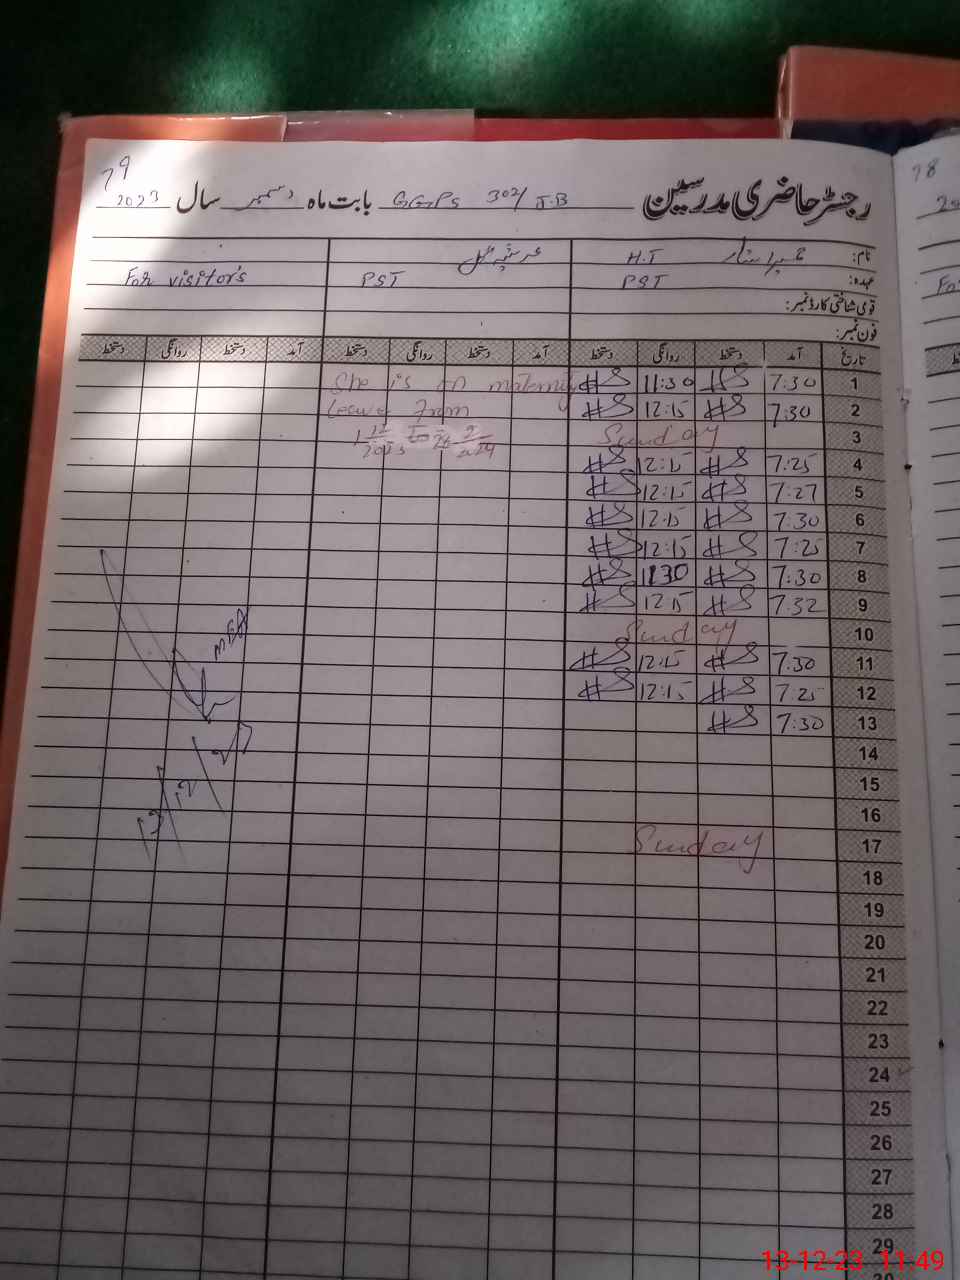 79
78
رجسٹر حاضری مدرسین GGPS 302/J.B بابت ماہ دسمبر سال 2023
نام: H.T
عہدہ: PST PST For visitor's
قومی شناختی کارڈ نمبر:
فون نمبر:
تاریخ آمد دستخط روانگی دستخط آمد دستخط روانگی دستخط آمد دستخط روانگی دستخط
1 7:30 HS 11:30 HS She is on maternity
2 7:30 HS 12:15 HS Leave From
3 Sunday 1 12 2023 to 28 2 2024
4 7:25 HS 12:15 HS
5 7:27 HS 12:15 HS
6 7:30 HS 12:15 HS
7 7:25 HS 12:15 HS
8 7:30 HS 1130 HS
9 7:32 HS 12:15 HS
10 Sunday
11 7:30 HS 12:15 HS
12 7:25 HS 12:15 HS
13 7:30 HS
14
15
16
17 Sunday
13/12/23
18
19
20
21
22
23
24
25
26
27
28
29
13-12-23 11:49